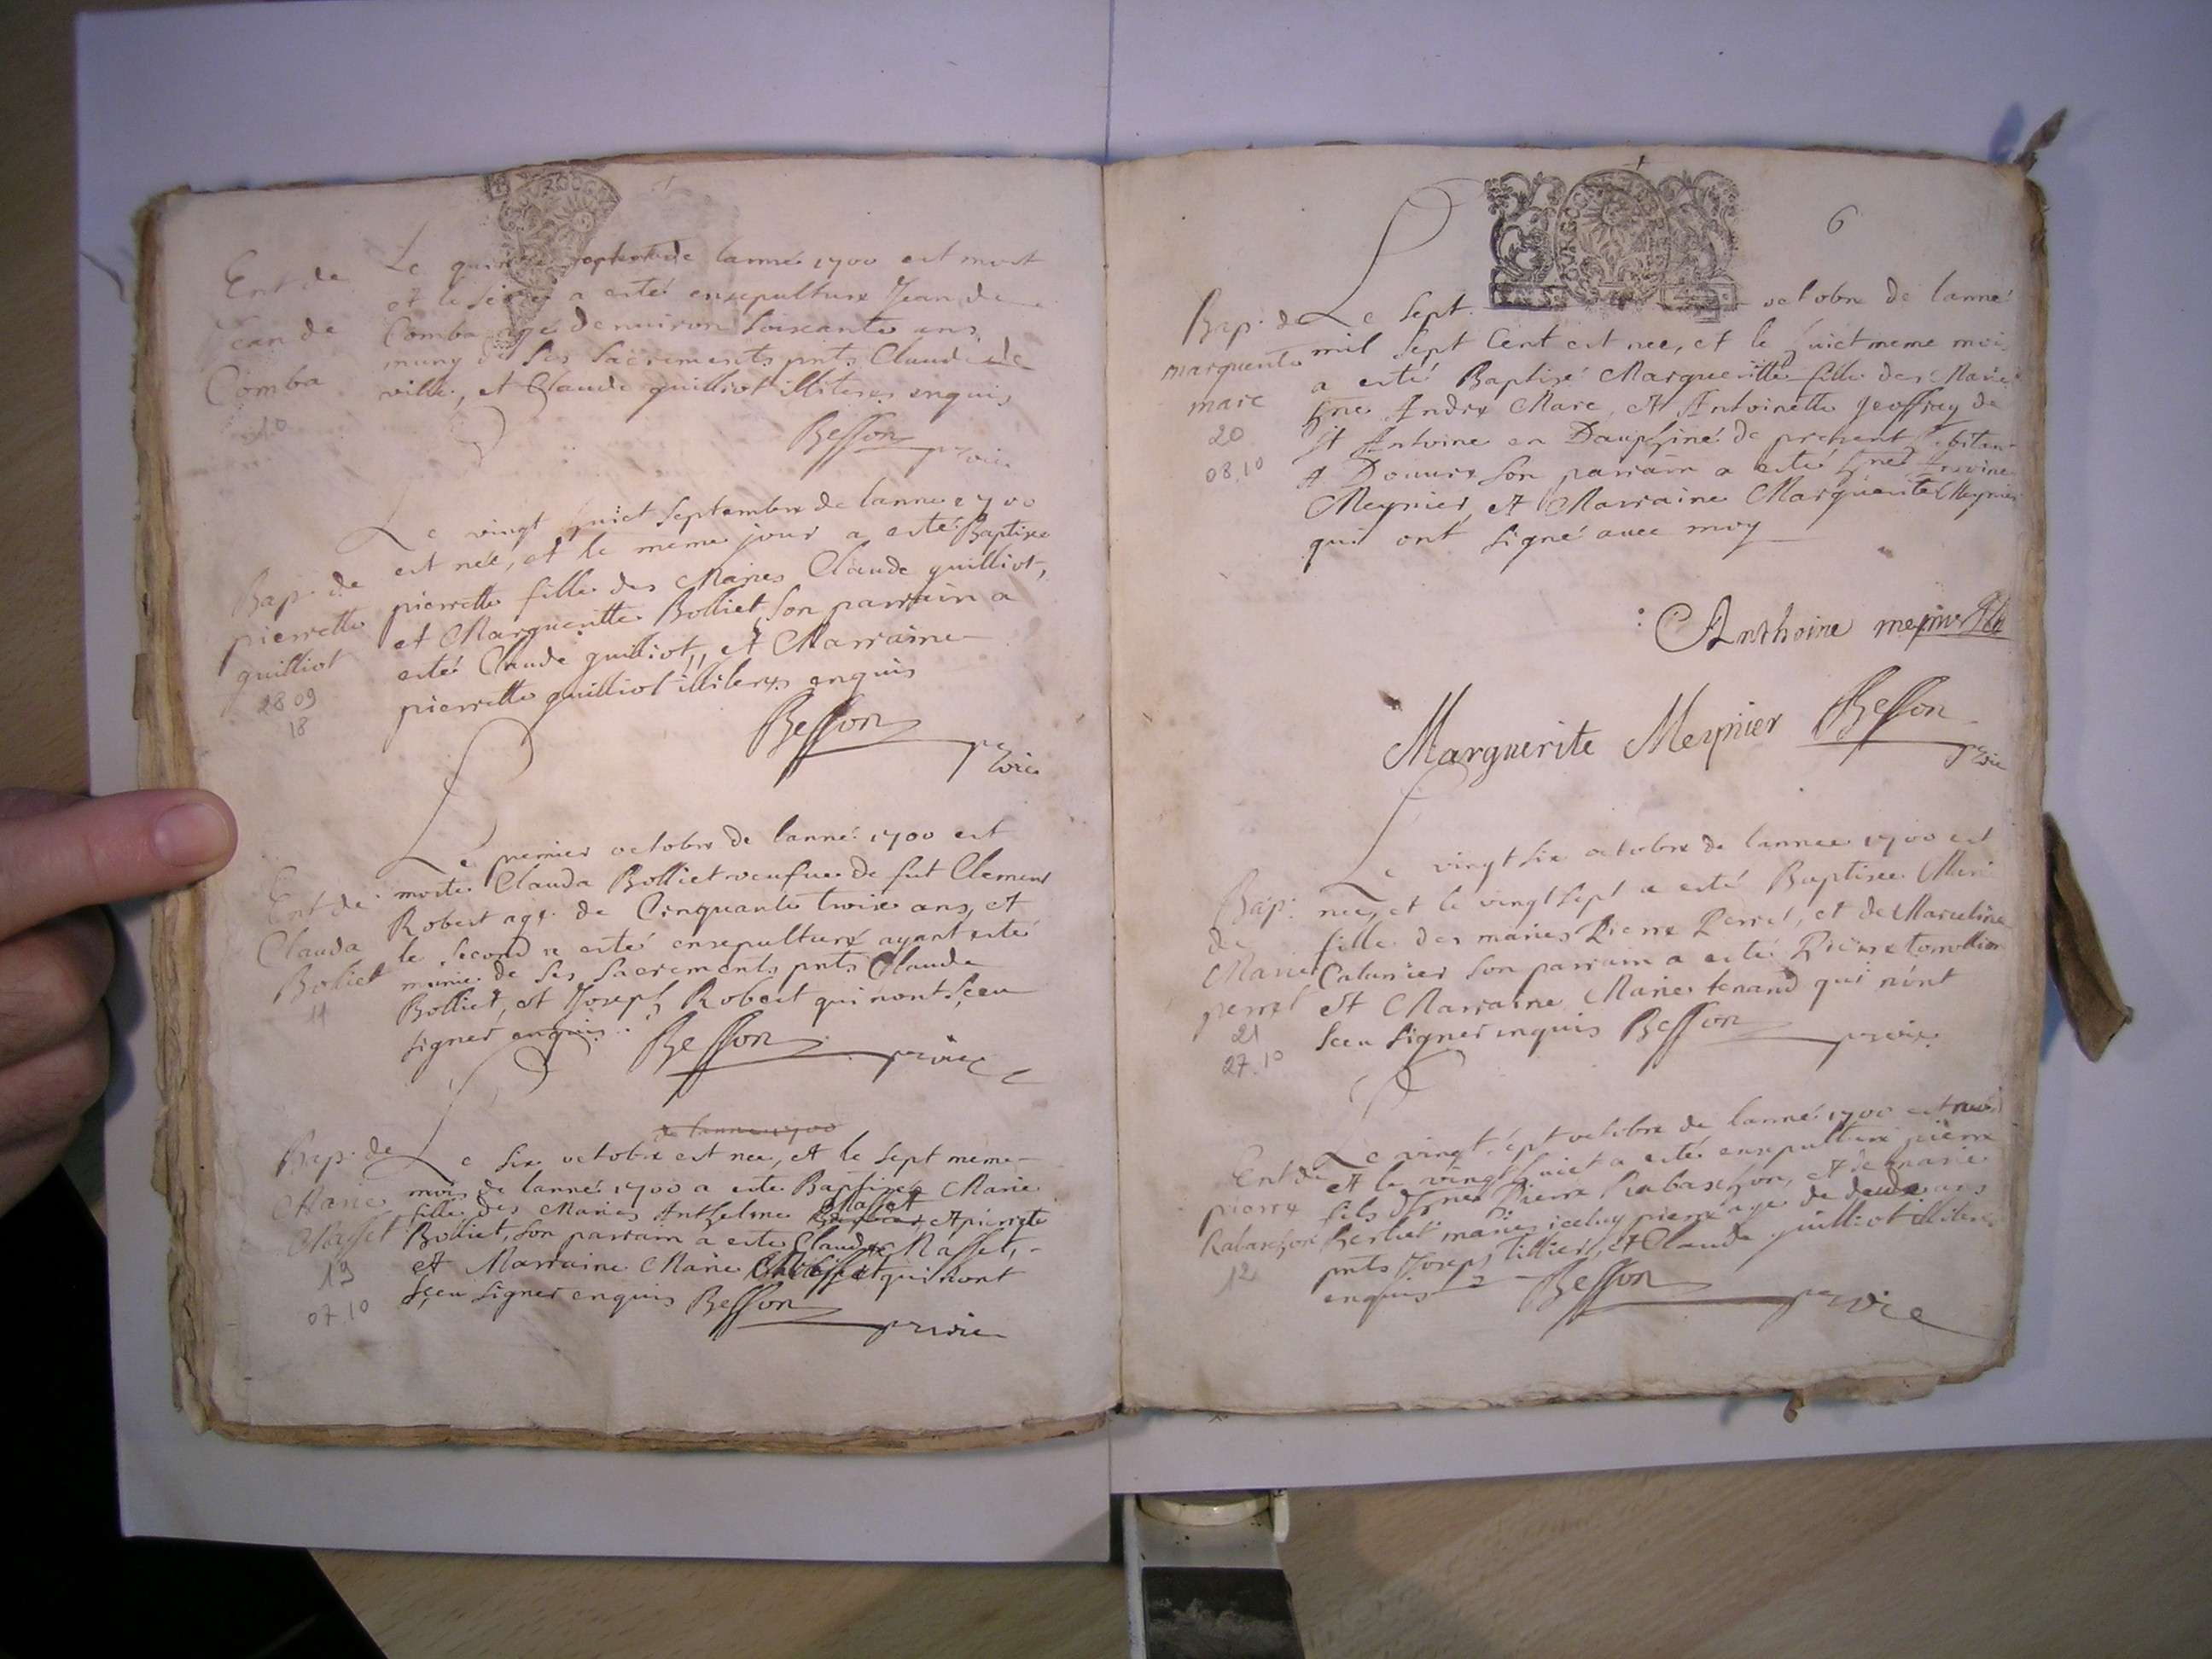 Ent de
Jean de
Comba
10
Le quinze septembre de lanné 1700 est mort
et le seize a esté ensepulture Jean de
Comba agé denuiron soixante ans
muny de ses sacrements pnts Claude de
ville, et Claude guilliot illiteres enquis
Besson
pr vic
Bap. de
pierrette
guilliot
28 09
18
Le vingt huict septembre de lanne 1700
est née, et le meme jour a esté Baptisee
pierrette fille des Maries Claude guilliot,
et Margueritte Bolliet son parrain a
esté Claude guilliot, et Marraine
pierrette guilliot illiteres enquis
Besson
pr vic
Ent de
Clauda
Boliet
11
Le premier octobre de lanné 1700 est
morte Clauda Bolliet veufue de fut Clement
Robert age de Cinquante trois ans, et
le second a esté ensepulture ayant esté
munie de ses sacrements pnts Claude
Bolliet, et Joseph Robert qui nont sceu
signer enquis
Besson
pr vic
de lanne 1700
Bap. de
Marie
Masset
19
07.10
Le six octobre est nee, et le sept meme
mois de lanné 1700 a esté Baptisée Marie
fille des Maries Anthelme Masset et pierrette
Bolliet, son parrain a esté Claude Masset,
et Marraine Marie qui nont
sceu signer enquis Besson
pr vic
6
Bap. de
marguerite
marc
20
08.10
Le sept octobre de lanné
mil sept cent est nee, et le huict meme mois
a esté Baptisé Margueritte fille des Maries
hne Andre Marc, et Antoinette Jeoffray de
st Antoine en Dauphiné de present habitant
A Douure son parrain a esté hne Antoine
Meynier, et Marraine Marguerite Meynier
qui ont signé auec moy
Anthoine meynier
Marguerite Meynier Besson
pr vic
Bap.
de
Marie
perret
21
27.10
Le vingt six octobre de lannee 1700 est
nee, et le vingt sept a esté Baptisee Marie
fille des maries Pierre Perret, et de Marceline
son parrain a esté Pierre
et Marraine Marie tenand qui nont
sceu signer enquis Besson
pr vic
Ent de
pierre
Rabaschon
12
Le vingt sept octobre de lanné 1700 est mort
et le vingt huict a esté ensepulture pierre
fils dhne Pierre Rabaschon, et de marie
Berliet maries iceluy pierre age de deux ans
pnts Joseph Tillier, et Claude guilliot illiteres
enquis Besson
pr vic